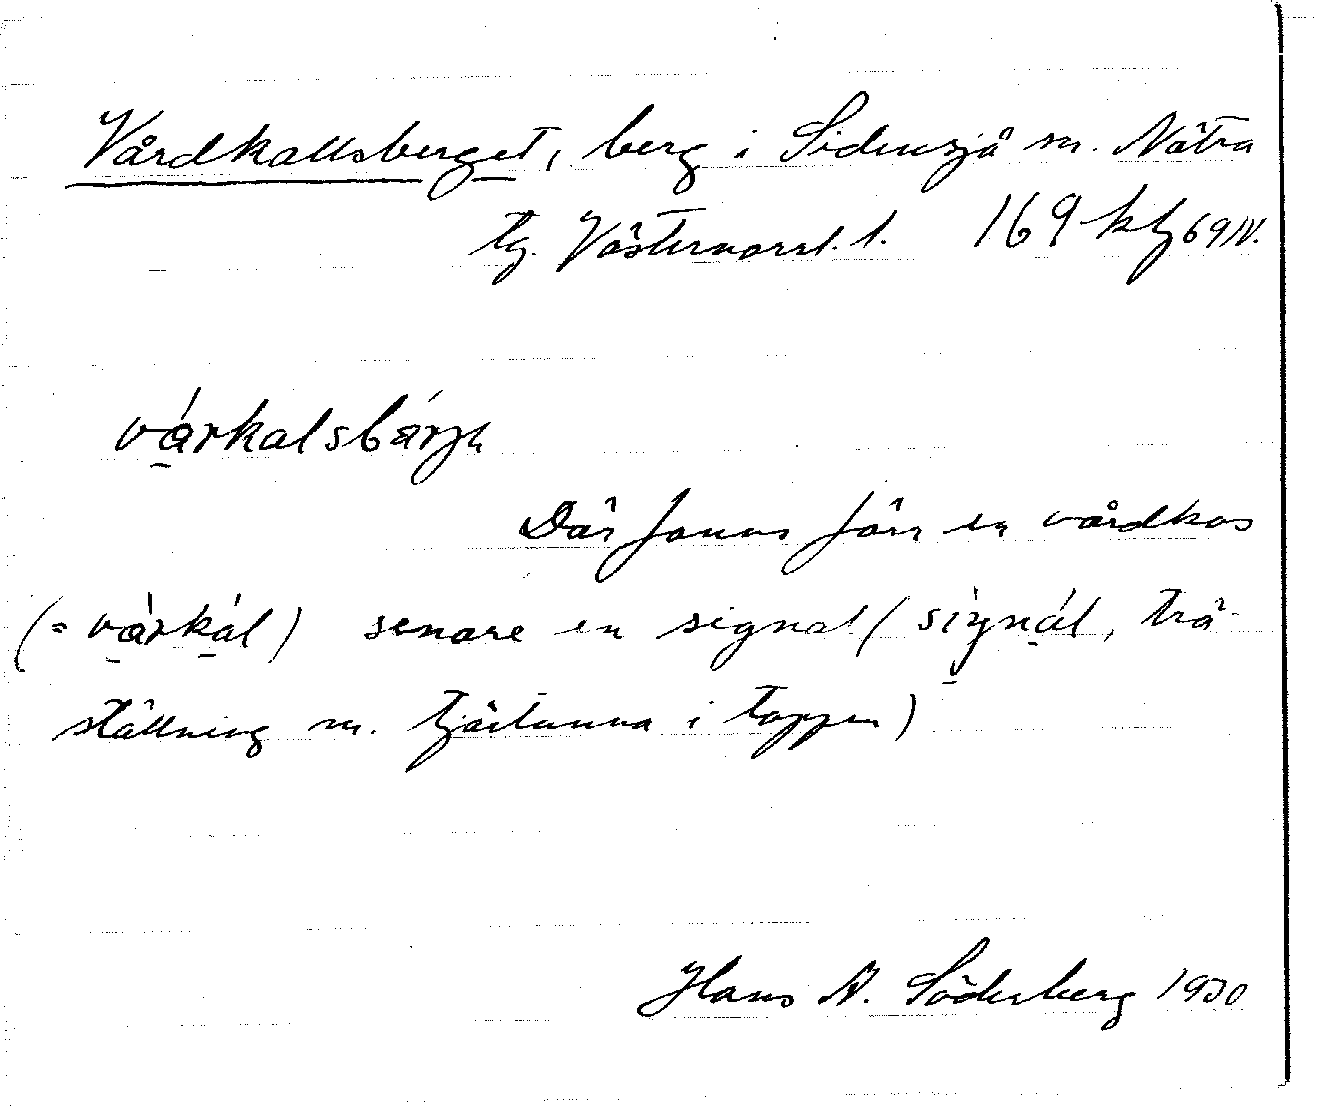 Vårdkallsberget, berg i Sidensjö sn. Nätra
tg. Västernorrl. l. 169 kbl 69 IV.
várkalsbárjə
Där fanns förr en vårdkas
(= várkál) senare en signal (siŋnál, trä-
ställning m. tjärtunna i toppen)
Hans N. Söderberg 1930